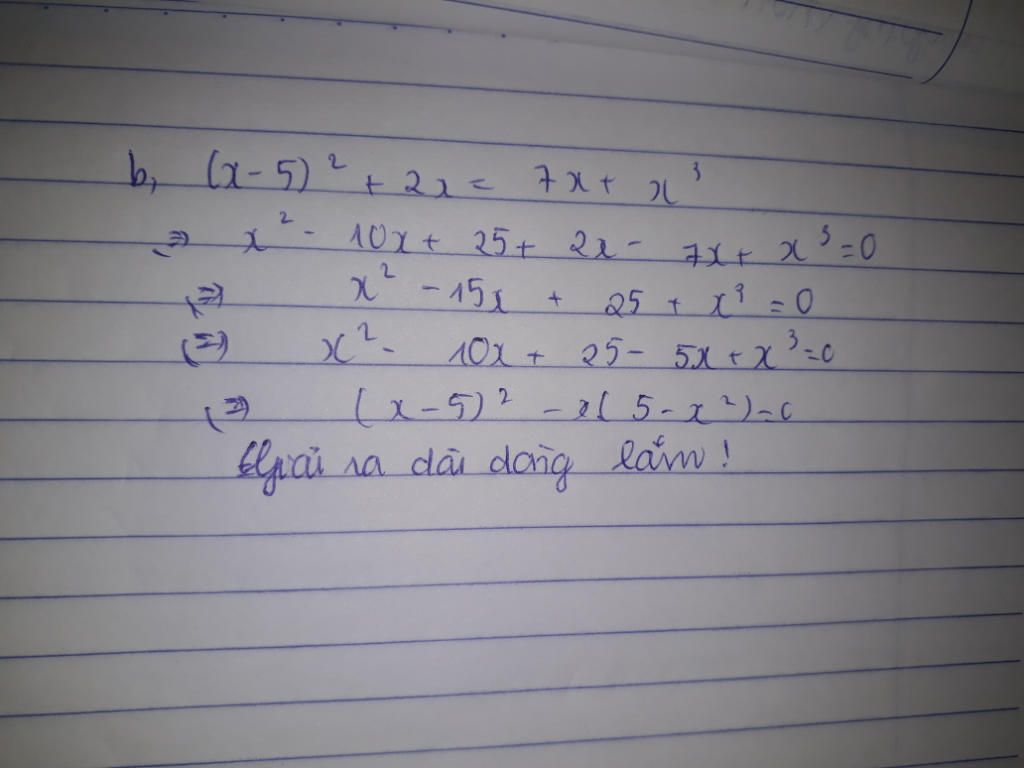 b, (x-5)² + 2x = 7x + x³
⇔ x² - 10x + 25 + 2x - 7x + x³ = 0
⇔ x² - 15x + 25 + x³ = 0
⇔ x² - 10x + 25 - 5x + x³ = 0
⇔ (x-5)² - x(5-x²) = 0
Giải ra dài dòng lắm!